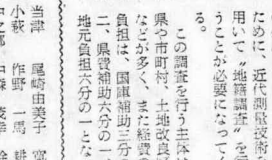 ために、近代測量技術
用いて〝地籍調査〟を行
うことが必要になってく
る。
この調査を行う主体は
県や市町村、土地改良
などが多く、また経費の
負担は、国庫補助三分
二、県費補助六分の一
地元負担六分の一とな
当津 尾崎由美子
小萩 作野一馬